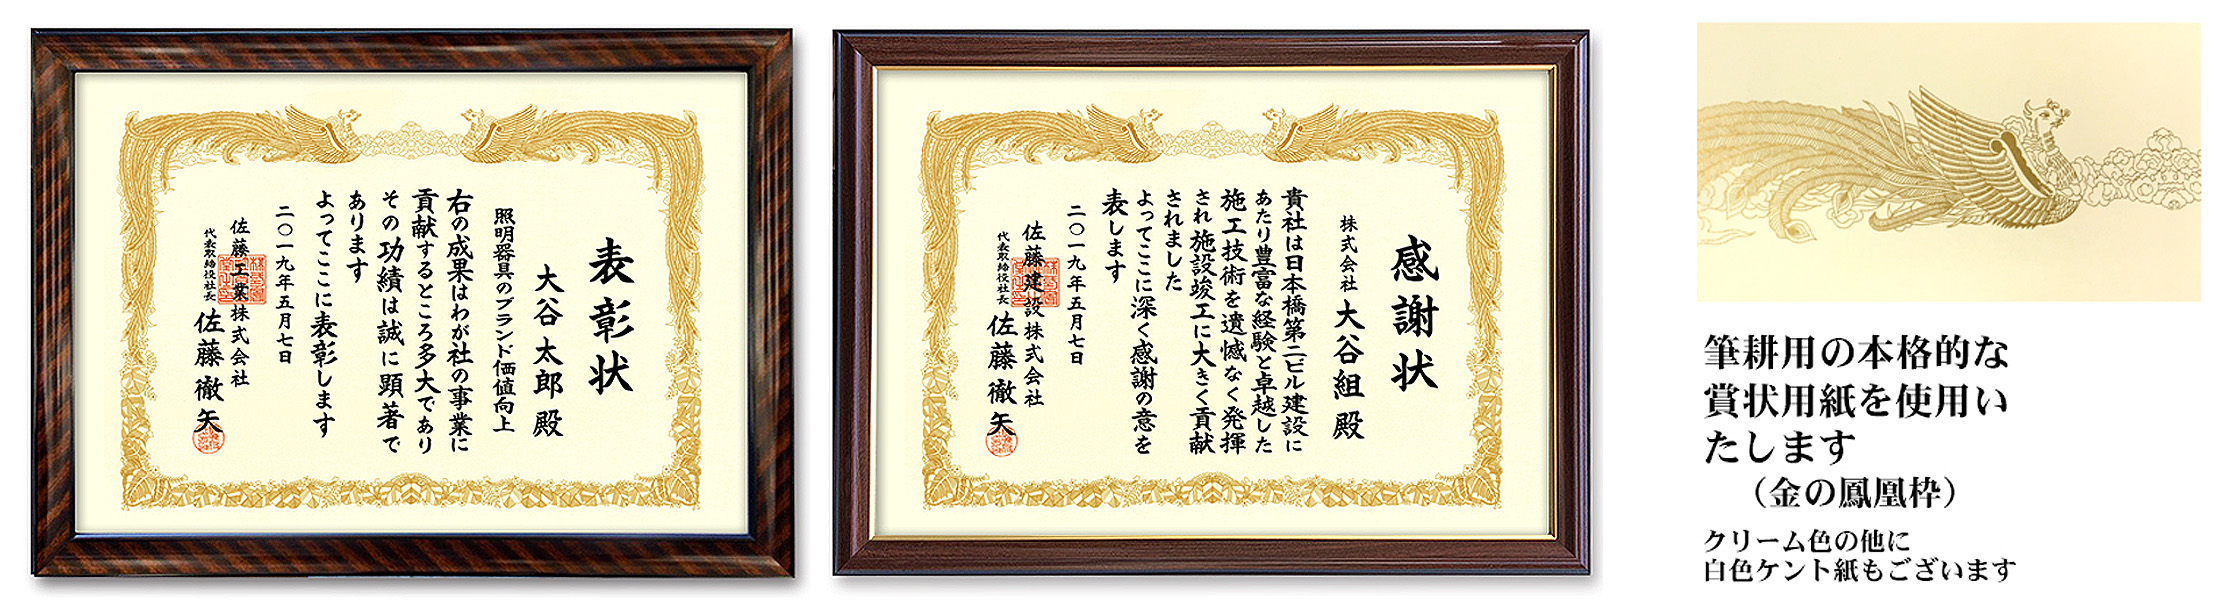 表彰状
大谷太郎 殿
照明器具のブランド価値向上
右の成果はわが社の事業に
貢献するところ多大であり
その功績は誠に顕著で
あります
よってここに表彰します
二〇一九年五月七日
佐藤工業株式会社
代表取締役社長 佐藤徹矢
感謝状
株式会社 大谷組 殿
貴社は日本橋第二ビル建設に
あたり豊富な経験と卓越した
施工技術を遺憾なく発揮
され施設竣工に大きく貢献
されました
よってここに深く感謝の意を
表します
二〇一九年五月七日
佐藤建設株式会社
代表取締役社長 佐藤徹矢
筆耕用の本格的な
賞状用紙を使用い
たします
（金の鳳凰枠）
クリーム色の他に
白色ケント紙もございます